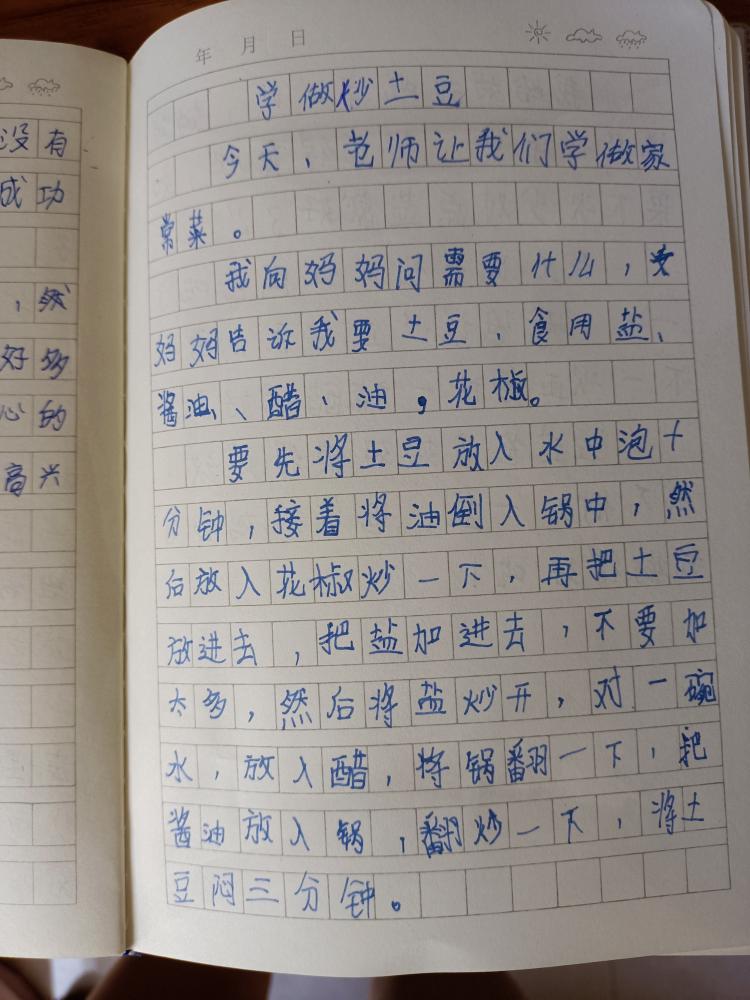 没有
成功
，然
好多
心的
高兴
年 月 日
学做炒土豆
今天、老师让我们学做家
常菜。
我向妈妈问需要什么，
妈妈告诉我要土豆、食用盐、
酱油、醋、油，花椒。
要先将土豆放入水中泡十
分钟，接着将油倒入锅中，然
后放入花椒炒一下，再把土豆
放进去，把盐加进去，不要加
太多，然后将盐炒开，对一碗
水，放入醋，将锅翻一下，把
酱油放入锅，翻炒一下，将土
豆闷三分钟。